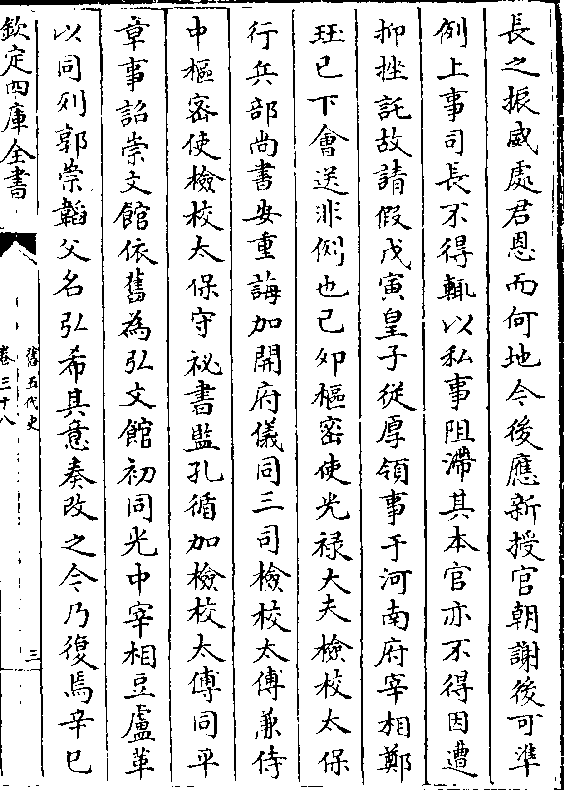 長之振威處君恩而何地今後應新授官朝謝後可準
例上事司長不得輒以私事阻滯其本官亦不得因遭
抑挫託故請假戊寅皇子從厚領事于河南府宰相鄭
珏已下會送非例也己卯樞密使光禄大夫檢校太保
行兵部尚書安重誨加開府儀同三司檢校太傅兼侍
中樞密使檢校太保守祕書監孔循加檢校太傅同平
章事詔崇文館依舊為弘文館初同光中宰相豆盧革
以同列郭崇韜父名弘希其意奏改之今乃復焉辛巳
欽定四庫全書
舊五代史
卷三十八
三